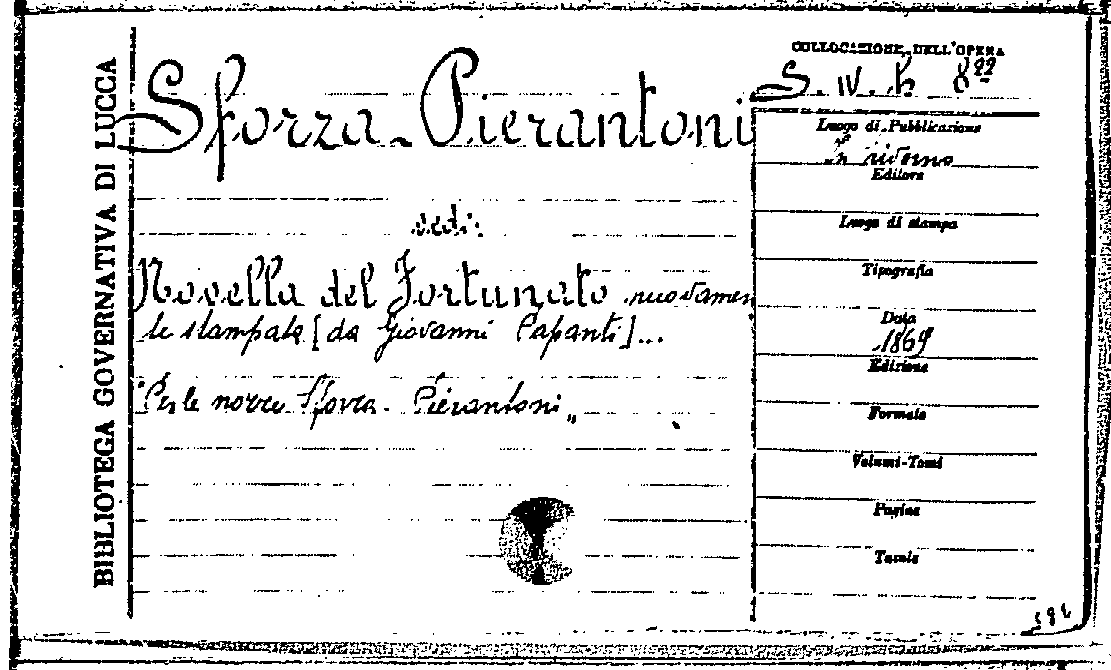 BIBLIOTEGA GOVERNATIVA DI LUCCA
Sforza-Pierantoni
vedi:
Novella del Fortunato nuovamen
te stampata [da Giovanni Papanti]...
"Per le nozze Sforza-Pierantoni„
COLLOCAZIONE DELL'OPERA
S. IV. h 8²²
Luogo di Pubblicazione
Livorno
Editore
Luogo di stampa
Tipografia
Data
1869
Edizione
Formato
Volumi-Tomi
Pagine
Tavole